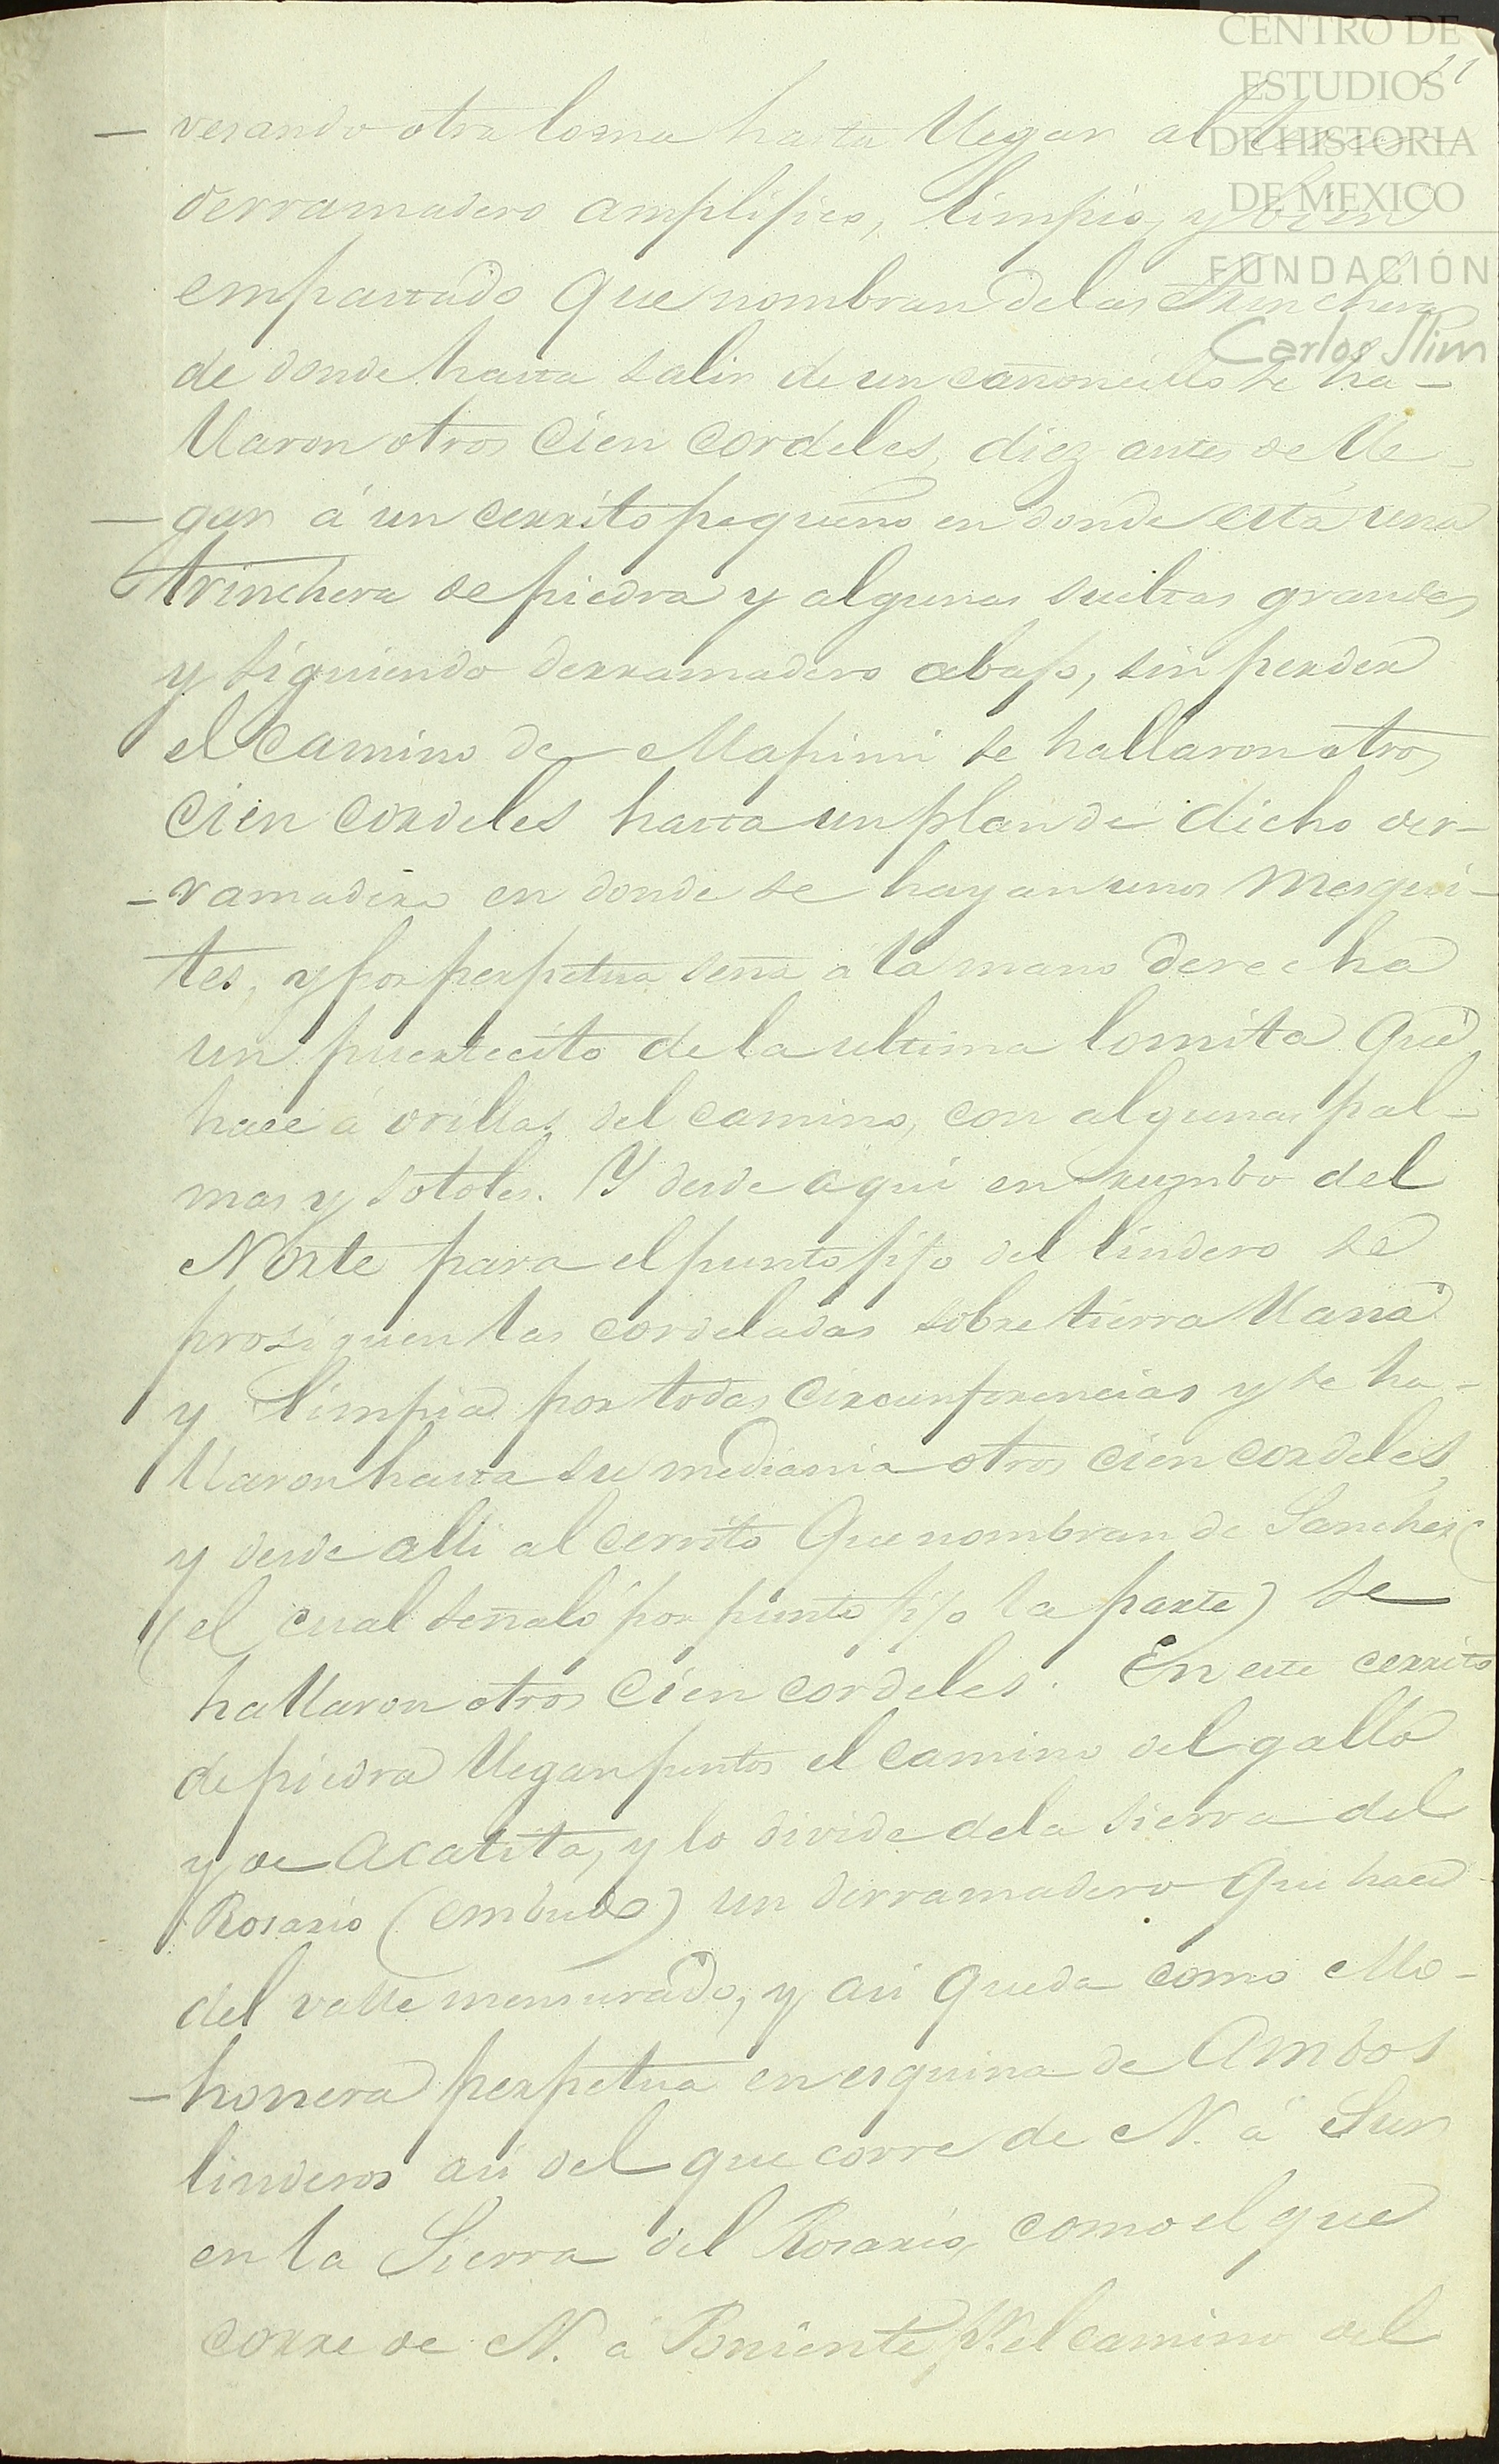 21
CENTRO DE
ESTUDIOS
DE HISTORIA
DE MEXICO
FUNDACIÓN
Carlos Slim
– verando otra loma hasta llegar al
derramadero amplifico, limpio, y bien
empastado que nombran de las Trincheras
de donde hasta salir de un cañoncillo se ha–
llaron otros cien cordeles, diez antes de lle–
– gar á un cerrito pequeño en donde esta una
trinchera de piedra y algunas sueltas grandes
y siguiendo derramadero abajo, sin perder
el camino de Mapimi se hallaron otros
cien cordeles hasta un plan de dicho der–
– ramadero en donde se hayan unos Mesqui–
tes, y por perpetua seña a la mano derecha
un puertecito de la ultima lomita que
hace á orillas del camino, con algunas pal–
mas y sotoles. Y desde aqui en rumbo del
Norte para el punto fijo del lindero se
prosiguen las cordeladas sobre tierra llana
y limpia por todas circunferencias y se ha–
llaron hasta su mediania otros cien cordeles,
y desde alli al cerrito que nombran de Sanchez
(el cual señaló por punto fijo la parte) se
hallaron otros cien cordeles. En este cerrito
de piedra llegan juntos el camino del gallo
y de Acatita, y lo divide de la sierra del
Rosario (embudo) un derramadero que hace
del valle mensurado, y asi queda como Mo–
– honera perpetua en esquina de Ambos
linderos asi del que corre de N. á Sur
en la Sierra del Rosario, como el que
corre de N. a Poniente pr. el camino del